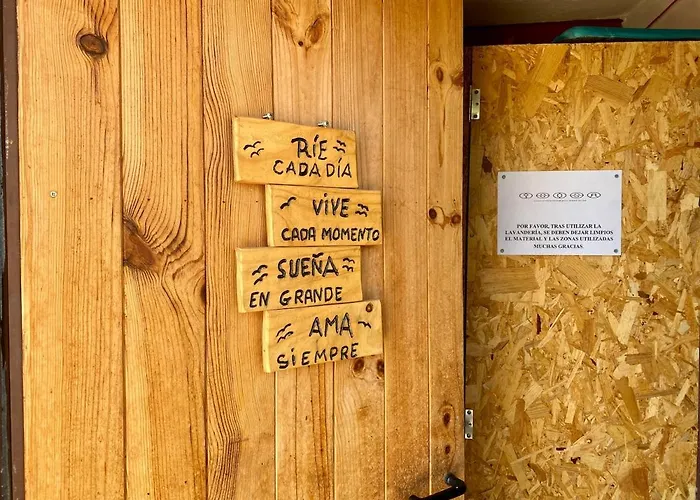 RÍE
CADA DÍA
VIVE
CADA MOMENTO
SUEÑA
EN GRANDE
AMA
SIEMPRE
POR FAVOR, TRAS UTILIZAR LA
LAVANDERÍA, SE DEBEN DEJAR LIMPIOS
EL MATERIAL Y LAS ZONAS UTILIZADAS
MUCHAS GRACIAS.